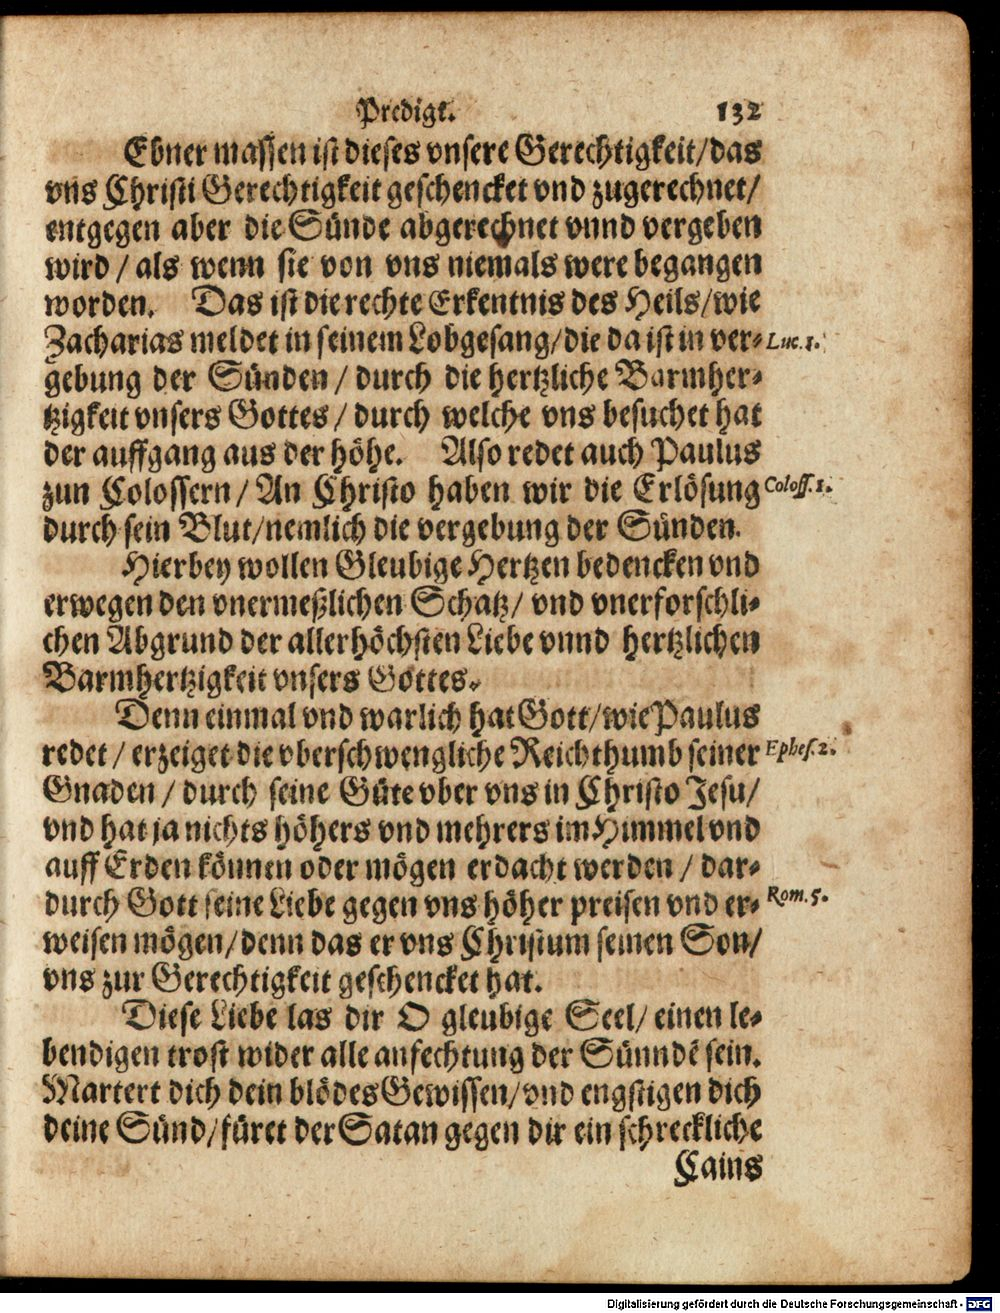 Predigt. 132
Ebner massen ist dieses vnsere Gerechtigkeit/das
vns Christi Gerechtigkeit geschencket vnd zugerechnet/
entgegen aber die Sünde abgerechnet vnnd vergeben
wird / als wenn sie von vns niemals were begangen
worden. Das ist die rechte Erkentnis des Heils/wie
Zacharias meldet in seinem Lobgesang/die da ist in ver- Luc. 1.
gebung der Sünden / durch die hertzliche Barmher-
tzigkeit vnsers Gottes / durch welche vns besuchet hat
der auffgang aus der höhe. Also redet auch Paulus
zun Colossern / An Christo haben wir die Erlösung Coloss. 1.
durch sein Blut/nemlich die vergebung der Sünden.
Hierbey wollen Gleubige Hertzen bedencken vnd
erwegen den vnermeßlichen Schatz/ vnd vnerforschli-
chen Abgrund der allerhöchsten Liebe vnnd hertzlichen
Barmhertzigkeit vnsers Gottes.
Denn einmal vnd warlich hat Gott/wie Paulus
redet / erzeiget die vberschwengliche Reichthumb seiner Ephes. 2.
Gnaden / durch seine Güte vber vns in Christo Jesu/
vnd hat ja nichts höhers vnd mehrers im Himmel vnd
auff Erden können oder mögen erdacht werden / dar-
durch Gott seine Liebe gegen vns höher preisen vnd er- Rom. 5.
weisen mögen/denn das er vns Christum seinen Son/
vns zur Gerechtigkeit geschencket hat.
Diese Liebe las dir O gleubige Seel/ einen le-
bendigen trost wider alle anfechtung der Sünndē sein.
Martert dich dein blödes Gewissen/vnd engstigen dich
deine Sünd/füret der Satan gegen dir ein schreckliche
Cains
Digitalisierung gefördert durch die Deutsche Forschungsgemeinschaft - DFG